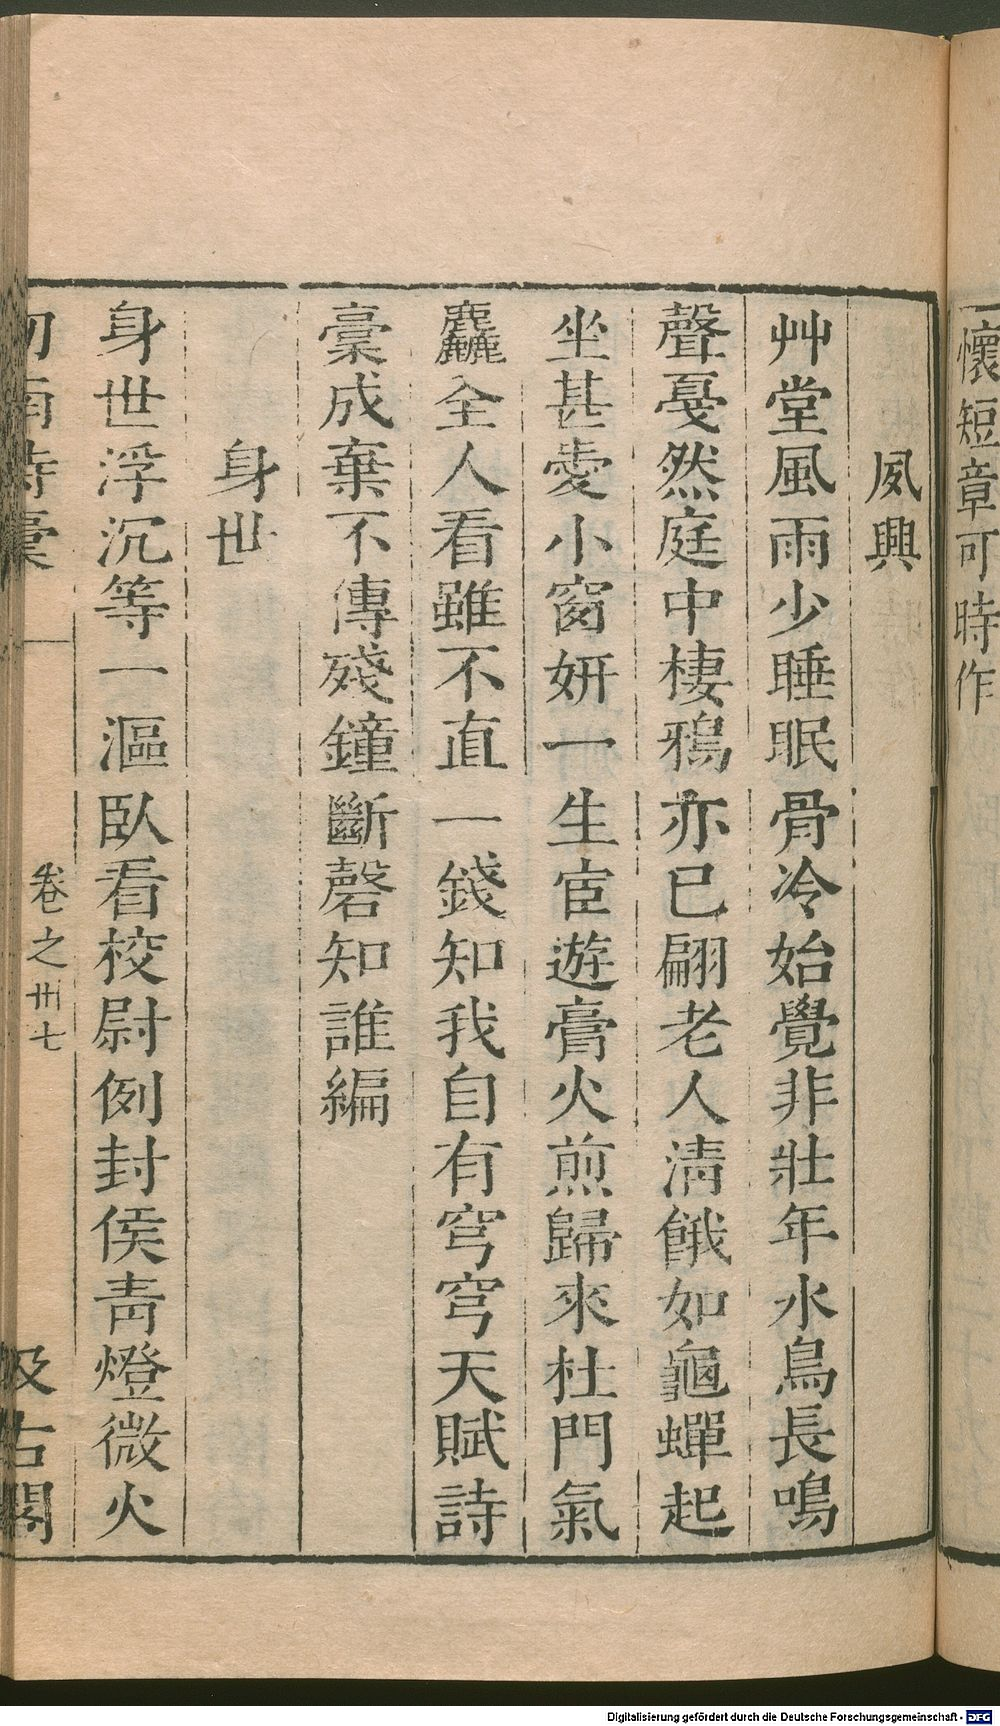 懷短章可時作
夙興
艸堂風雨少睡眠骨冷始覺非壯年水鳥長鳴
聲戞然庭中棲鴉亦已翩老人淸餓如龜蟬起
坐甚愛小窗妍一生宦遊膏火煎歸來杜門氣
麤全人看雖不直一錢知我自有穹穹天賦詩
稾成棄不傳殘鐘斷磬知誰編
身世
身世浮沉等一漚臥看校尉例封侯靑燈微火
劒南詩稾
卷之卅七
汲古閣
Digitalisierung gefördert durch die Deutsche Forschungsgemeinschaft - DFG